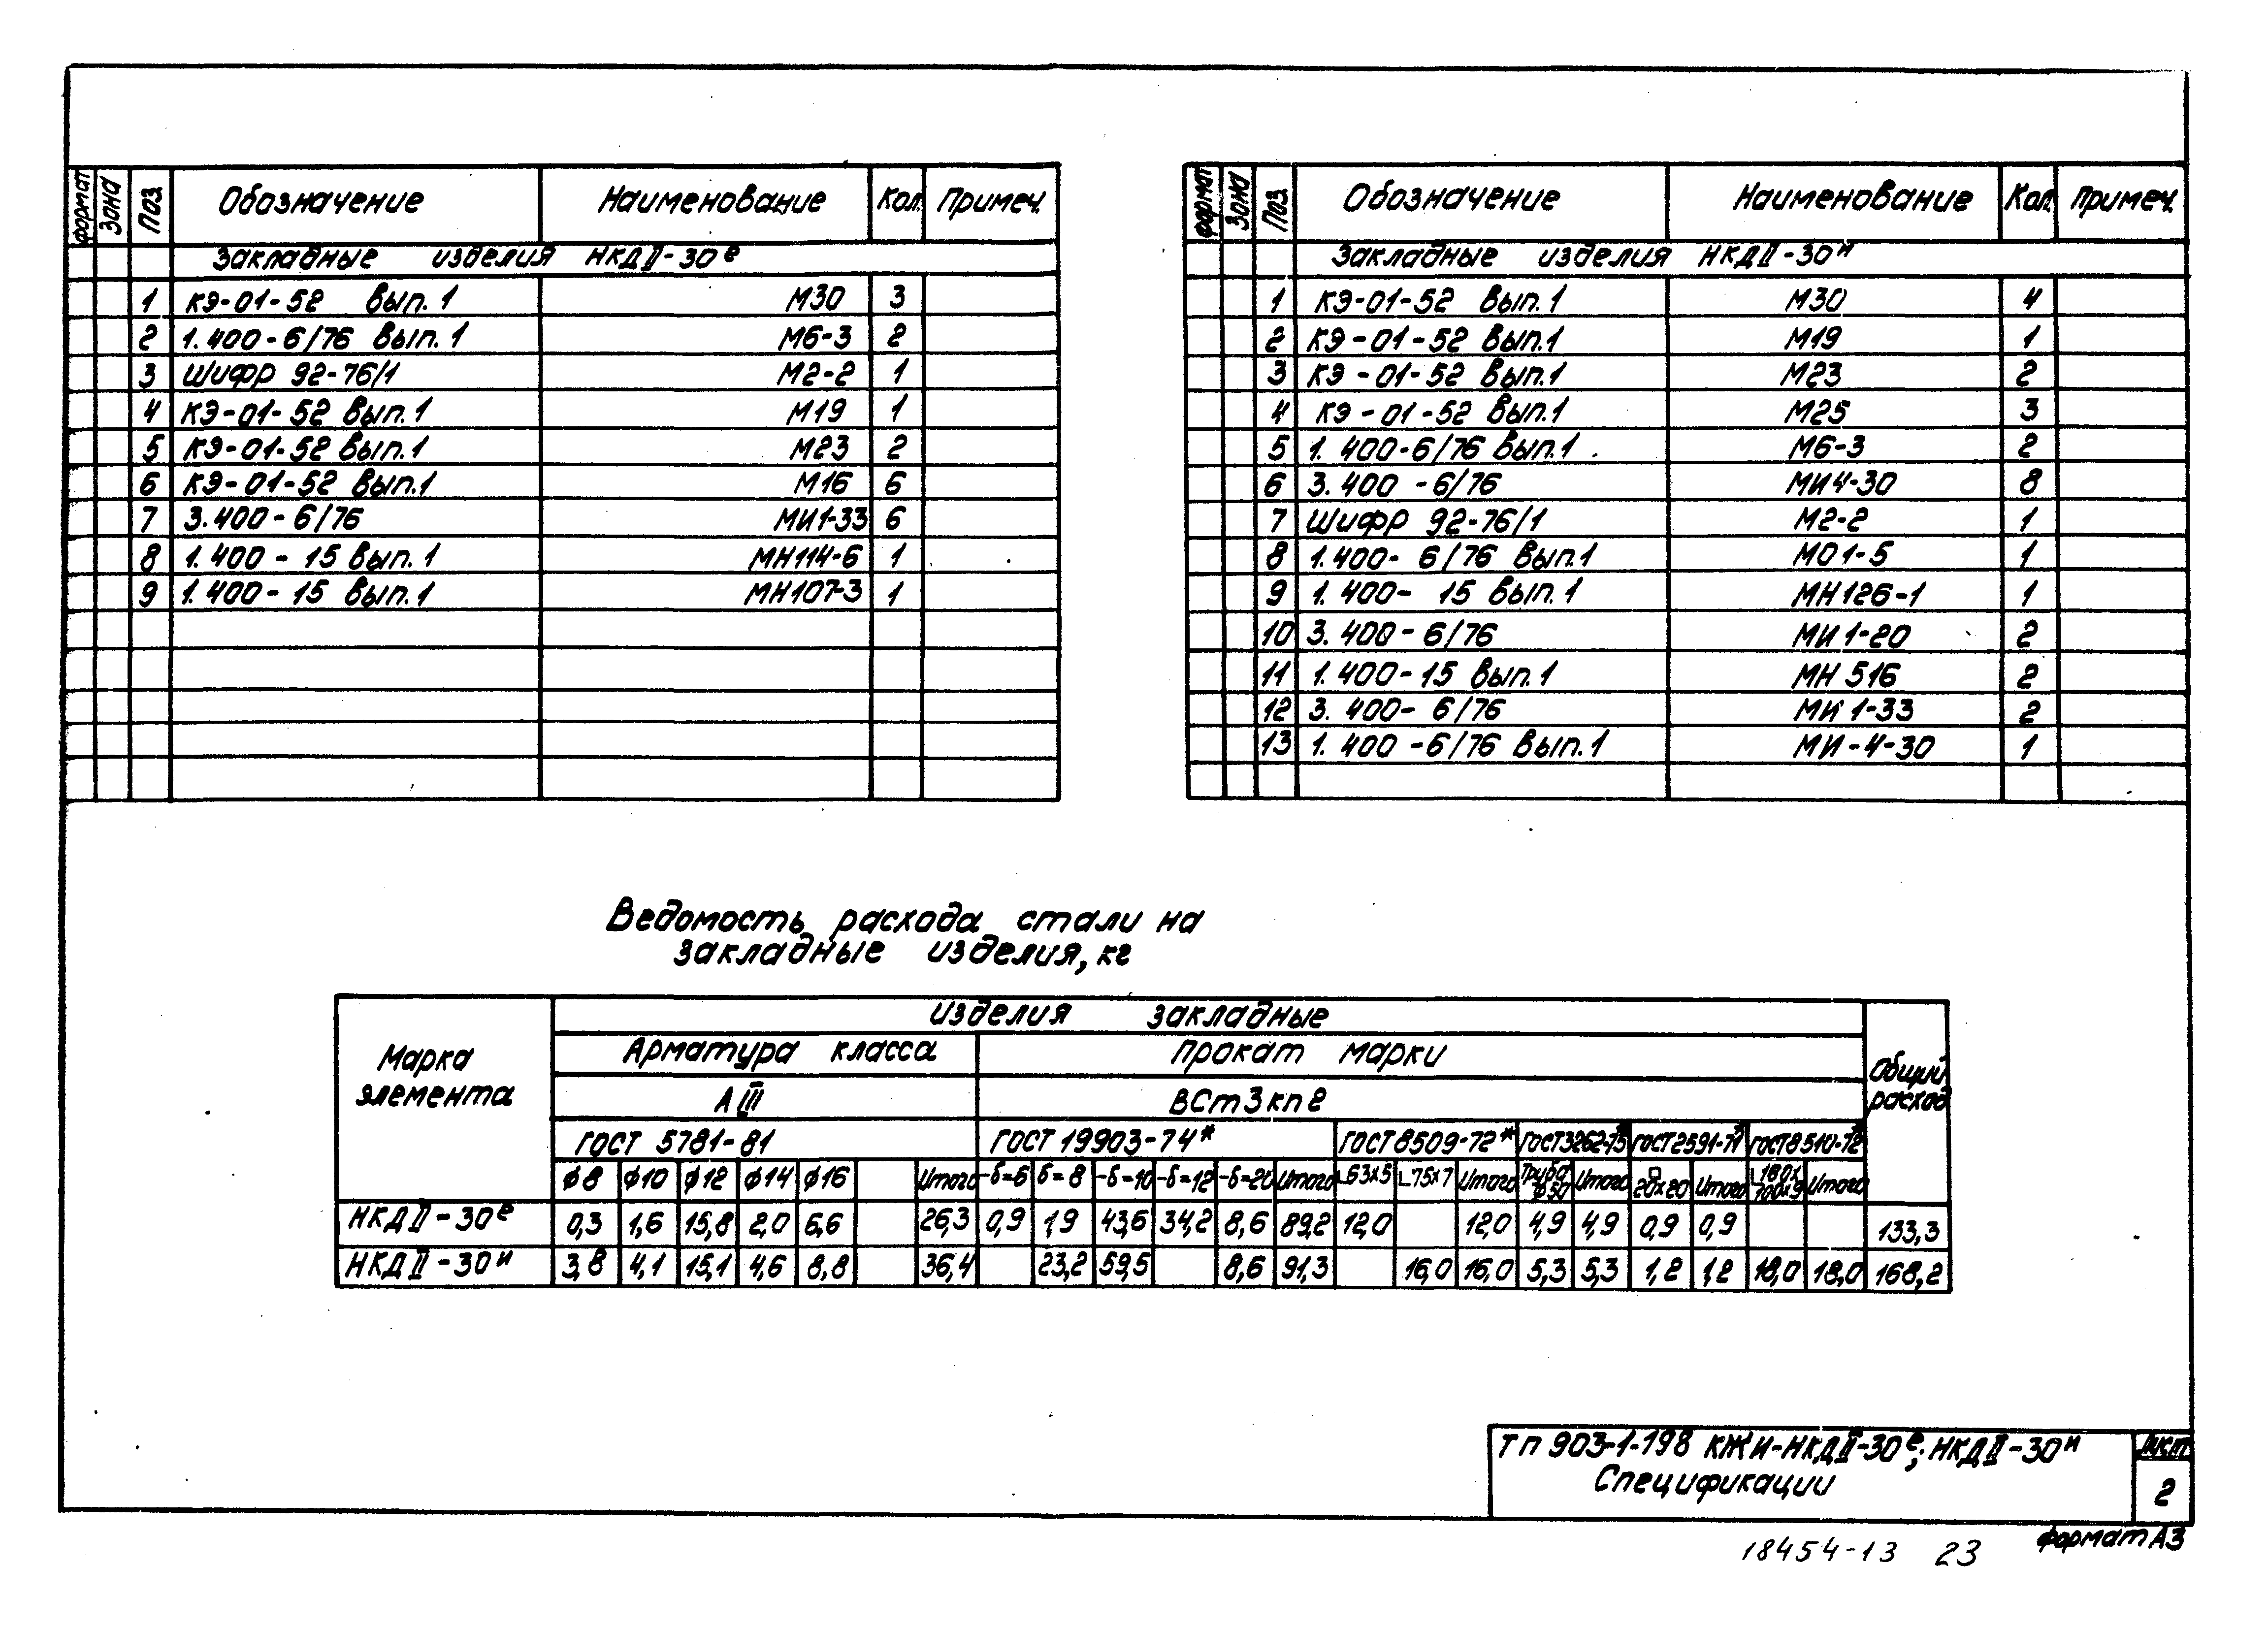 Формат Зона Поз. Обозначение Наименование Кол. Примеч.
Закладные изделия НКДII-30е
1 КЭ-01-52 Вып.1 М30 3
2 1.400-6/76 Вып.1 М6-3 2
3 Шифр 92-76/1 М2-2 1
4 КЭ-01-52 Вып.1 М19 1
5 КЭ-01-52 Вып.1 М23 2
6 КЭ-01-52 Вып.1 М16 6
7 3.400-6/76 МИ1-33 6
8 1.400-15 Вып.1 МН114-6 1
9 1.400-15 Вып.1 МН107-3 1
Формат Зона Поз. Обозначение Наименование Кол. Примеч.
Закладные изделия НКДII-30и
1 КЭ-01-52 Вып.1 М30 4
2 КЭ-01-52 Вып.1 М19 1
3 КЭ-01-52 Вып.1 М23 2
4 КЭ-01-52 Вып.1 М25 3
5 1.400-6/76 Вып.1 М6-3 2
6 3.400-6/76 МИ4-30 8
7 Шифр 92-76/1 М2-2 1
8 1.400-6/76 Вып.1 М01-5 1
9 1.400-15 Вып.1 МН126-1 1
10 3.400-6/76 МИ1-20 2
11 1.400-15 Вып.1 МН516 2
12 3.400-6/76 МИ1-33 2
13 1.400-6/76 Вып.1 МИ-4-30 1
Ведомость расхода стали на
закладные изделия, кг
Марка элемента Изделия закладные Общий расход
Арматура класса Прокат марки
АIII ВСт3кп2
ГОСТ 5781-81 ГОСТ 19903-74* ГОСТ 8509-72* ГОСТ3262-75* ГОСТ2591-71* ГОСТ8510-72*
ф8 ф10 ф12 ф14 ф16 Итого -δ=6 δ=8 -δ=10 -δ=12 -δ=20 Итого ∟63х5 ∟75х7 Итого Труба ф50 Итого □ 20х20 Итого ∟180х 100х9 Итого
НКДII-30е 0,3 1,6 15,8 2,0 6,6 26,3 0,9 1,9 43,6 34,2 8,6 89,2 12,0 12,0 4,9 4,9 0,9 0,9 133,3
НКДII-30и 3,8 4,1 15,1 4,6 8,8 36,4 23,2 59,5 8,6 91,3 16,0 16,0 5,3 5,3 1,2 1,2 18,0 18,0 168,2
ТП 903-1-198 КЖИ-НКДII-30е; НКДII-30и
Спецификации
Лист
2
Формат А3
18454-13 23